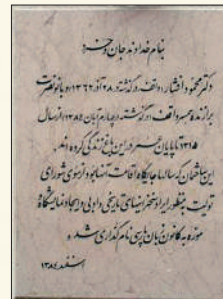 بنام خداوند جان و خرد
دکتر محمود افشار (واقف، درگذشته ۲۸ آذر ۱۳۶۲) و بانو نصرت
برازنده همسر واقف (درگذشته چهارم آبان ۱۳۵۸) از سال
۱۳۱۵ تا پایان عمر در این باغ زندگی کرده اند.
این ساختمان که سالها جایگاه اقامت آنها بود از سوی شورای
تولیت بمنظور ایراد سخنرانیهای تاریخی و ادبی و ایجاد نمایشگاه و
موزه به کانون زبان پارسی نام گذاری شد.
اسفند ۱۳۸۶